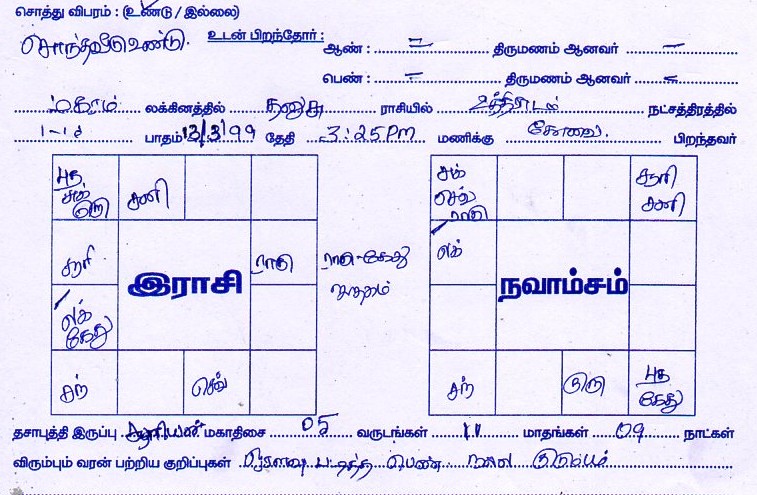 சொத்து விபரம் : (உண்டு / இல்லை)
சொந்தவீடு உண்டு. உடன் பிறந்தோர் : ஆண் : – திருமணம் ஆனவர் –
பெண் : – திருமணம் ஆனவர் –
மகரம் லக்கினத்தில் தனுசு ராசியில் உத்திராடம் நட்சத்திரத்தில்
பாதம் 12/3/99 தேதி 3:25PM மணிக்கு கோவை பிறந்தவர்
புத சுக் குரு
சனி
சூரி
ராகு
லக் கேது
சந்
செவ்
இராசி
ராகு-கேது
சுக் செவ் ராகு
சூரி சனி
லக்
சந்
குரு
புத கேது
நவாம்சம்
தசாபுத்தி இருப்பு சூரியன் மகாதிசை 05 வருடங்கள் 11 மாதங்கள் 09 நாட்கள்
விரும்பும் வரன் பற்றிய குறிப்புகள் படித்த பெண் நல்ல குடும்பம்